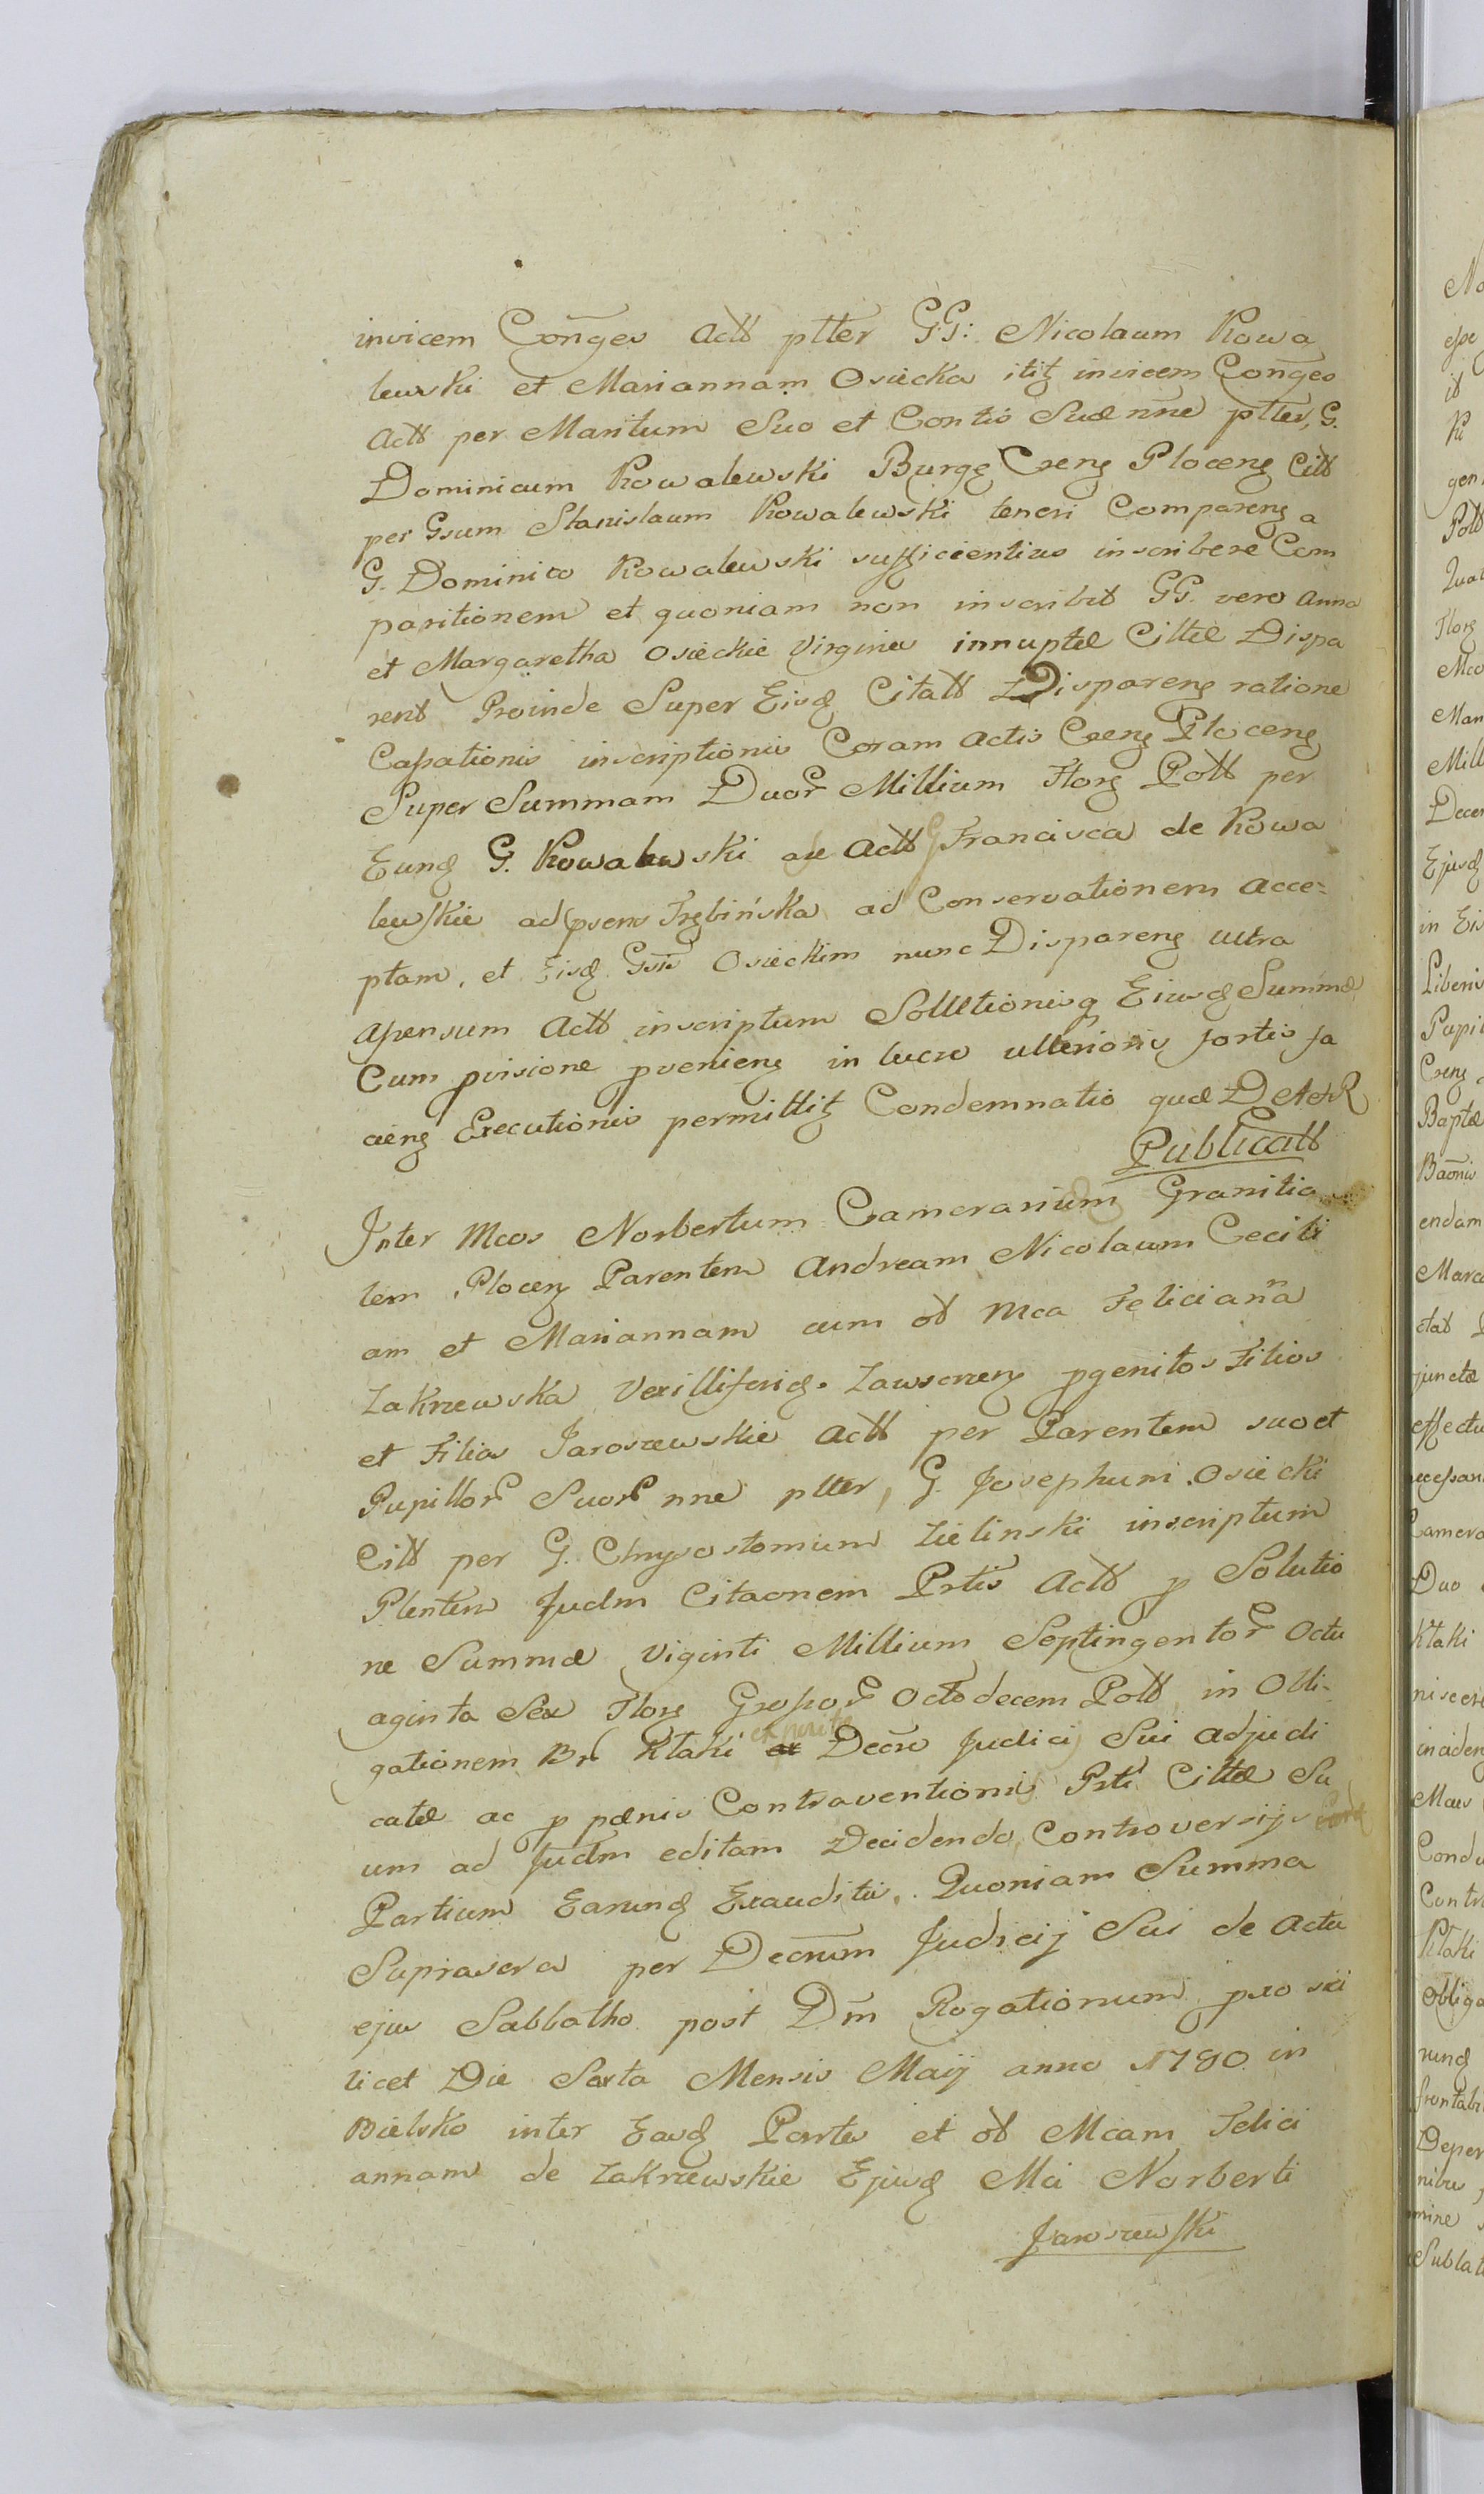 invicem Conges Actt ptter GG: Nicolaum Kowa
lewski et Mariannam Osiecka itiq invicem Conges
Actt per Maritum Suo et Contis Suæ nne ptter, G.
Dominicum Kowalewski Burgg Creng Ploceng Citt
per Gsum Stanislaum Kowalewski teneri Compareng a
G. Dominico Kowalewski sufficientius inscribere Com
paritionem et quoniam non inscribit GG. vero Anna
et Margaretha Osieckie Virgines innuptæ Cittæ Dispa
rent Proinde Super Eisq Citatt Dispareng ratione
Cassationis inscriptionis Coram Actis Creng Ploceng
Super Summam Duor Millium Flong Pott per
Eunq G. Kowalewski ac Actt G Francisca de Kowa
lewskie adpsens Trębińska ad Conservationem acce=
ptam, et Eisq Gsis Osieckim nunc Dispareng ultra
assensum Actt inscriptum Solutionisq Eiusq Summæ
Cum pvisione pvenieng in lucro ulterioris fortis fa
cieng Executionis permittiq Condemnatio quæ DetetR
Publicatt
Inter Mcos Norbertum Camerarium Granitia
lem Ploceng Parentem Andream Nicolaum Cecili
am et Mariannam cum ot Mca Feliciana
Zakrzewska Vexilliferiq. Zawscrzeng pgenitos Filios
et Filias Jaroszewskie Actt per Parentem suo et
Pupillor Suor nne ptter, G. Josephum Osiecki
Citt per G. Chrysostomum Zielinski inscriptum
Plentem Judm Citaonem Prtis Actt p Solutio
ne Summæ Viginti Millium Septingentor Octu
aginta Sex Flong Grossor Octodecem Pott in Obli-
gationem Br Ktaki Decre Judicij Sui adjudi
catæ ac p pænis Contraventionis Prti Cittæ Su
um ad Judm editam Decidendo, Controversijs
Partium Earunq Exauditis. Quoniam Summa
Suprascra per Decrum Judicij Sui de Actu
ejus Sabbatho post Dm Rogationum pro sci
licet Die Sexta Mensis Maij anno 1780 in
Bielsko inter Easq Partes et ot Mcam Felici
annam de Zakrzewskie Ejusq Mci Norberti
Jaroszewski